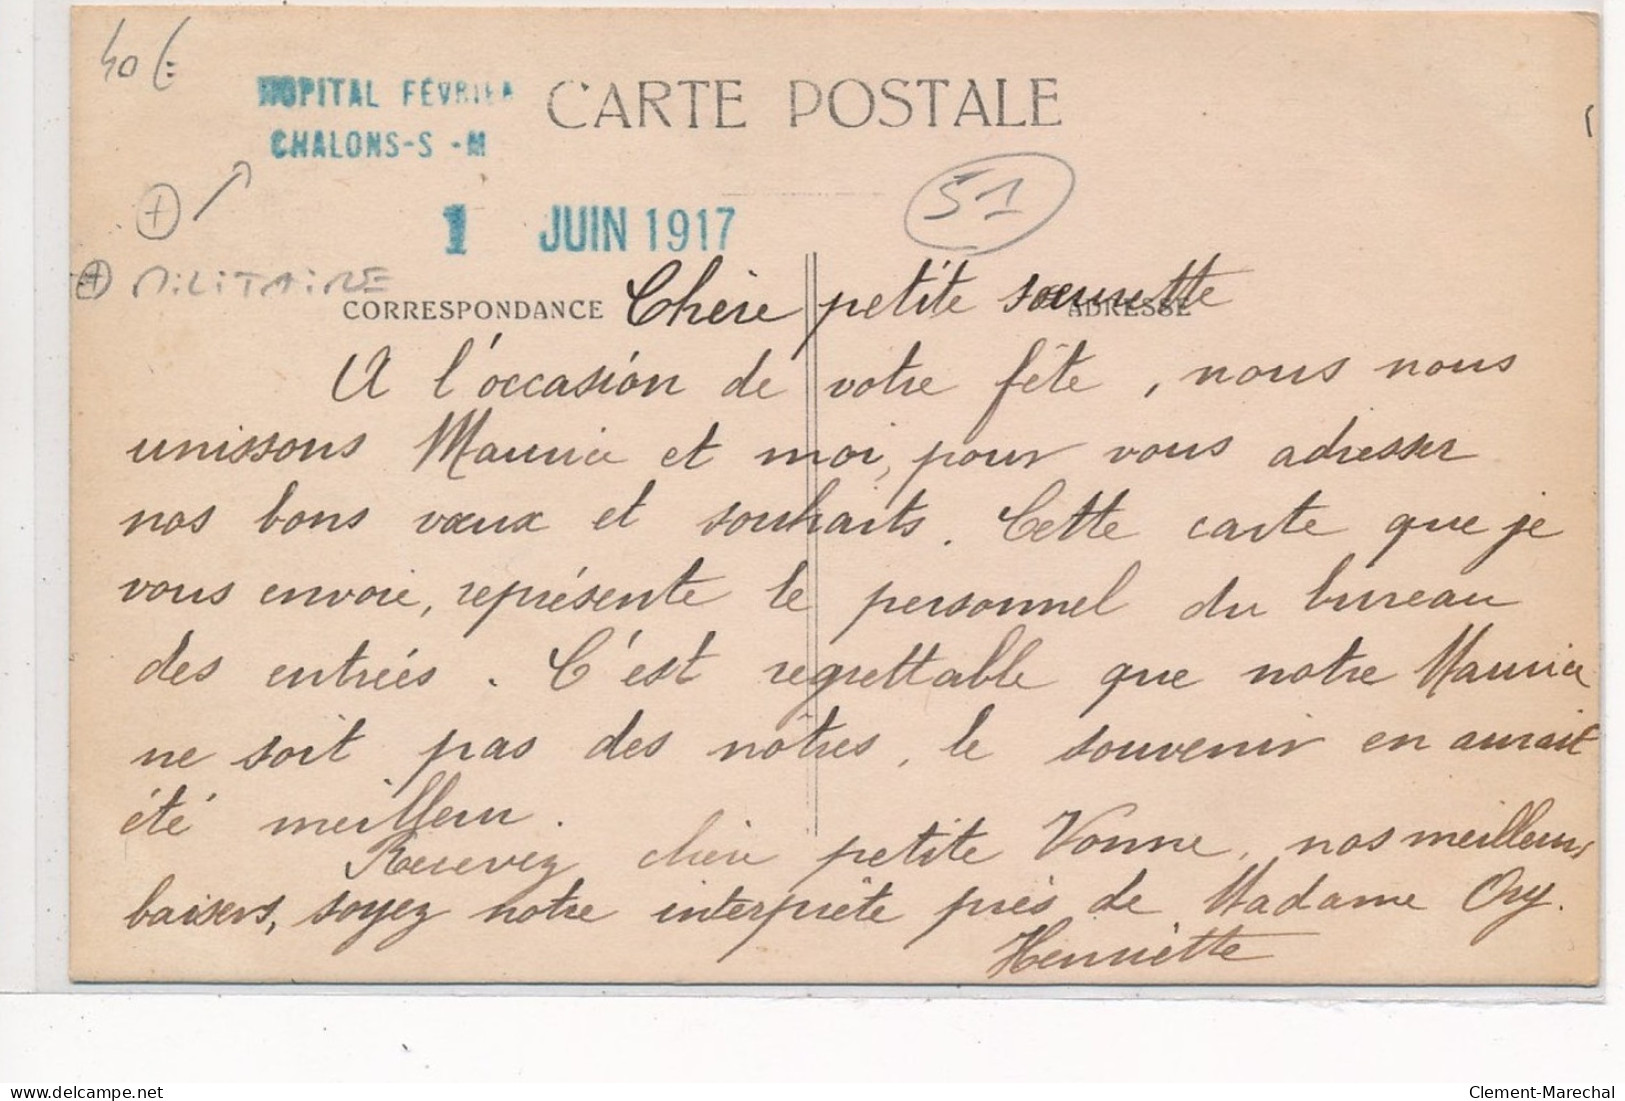 40 €
HOPITAL FÉVRIER
CHALONS-S -M
CARTE POSTALE
51
1 JUIN 1917
MILITAIRE
CORRESPONDANCE
ADRESSE
Chère petite sœurette
A l'occasion de votre fête, nous nous
unissons Maurice et moi, pour vous adresser
nos bons vœux et souhaits. Cette carte que je
vous envoie, représente le personnel du bureau
des entrées. C'est regrettable que notre Maurice
ne soit pas des nôtres, le souvenir en aurait
été meilleur.
Recevez chère petite Vonne, nos meilleurs
baisers, soyez notre interprête près de Madame Ory.
Henriette
delcampe.net
Clement-Marechal